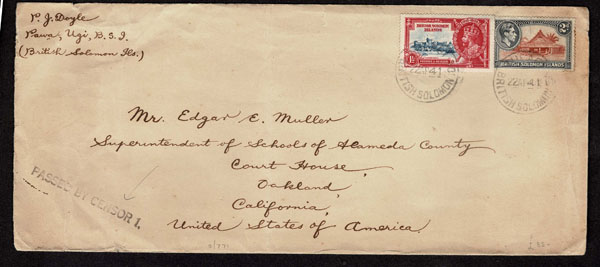 V. J. Doyle
Pawa, Ugi, B.S.I.
(British Solomon Ils.)
BRITISH SOLOMON ISLANDS
BRITISH SOLOMON ISLANDS
BRITISH SOLOMON
BRITISH SOLOMON
Mr. Edgar E. Muller
Superintendent of Schools of Alameda County
Court House,
Oakland,
California,
United States of America.
PASSED BY CENSOR 1.